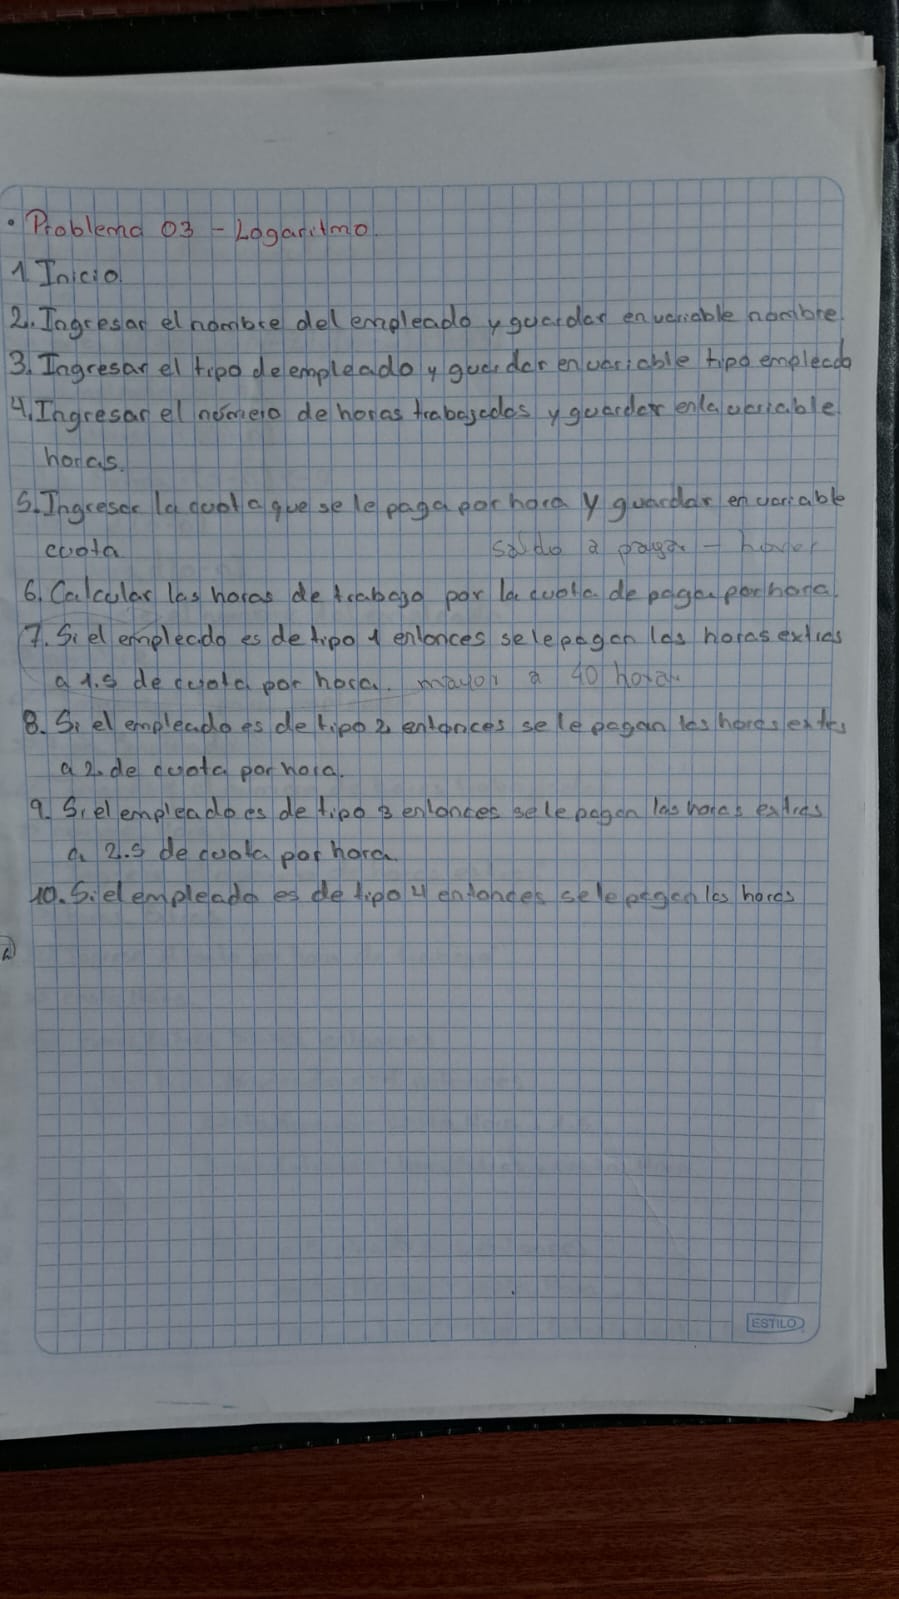 • Problema 03 - Logaritmo.
1. Inicio.
2. Ingresar el nombre del empleado y guardar en variable nombre.
3. Ingresar el tipo de empleado y guardar en variable tipo empleado
4. Ingresar el número de horas trabajadas y guardar en la variable
horas.
5. Ingresar la cuota que se le paga por hora y guardar en variable
cuota saldo a pagar -
6. Calcular las horas de trabajo por la cuota de pago por hora.
7. Si el empleado es de tipo 1 entonces se le pagan las horas extras
a 1.5 de cuota por hora. mayor a 40 horas
8. Si el empleado es de tipo 2 entonces se le pagan las horas extras
a 2 de cuota por hora.
9. Si el empleado es de tipo 3 entonces se le pagan las horas extras
a 2.5 de cuota por hora
10. Si el empleado es de tipo 4 entonces se le pagan las horas
ESTILO